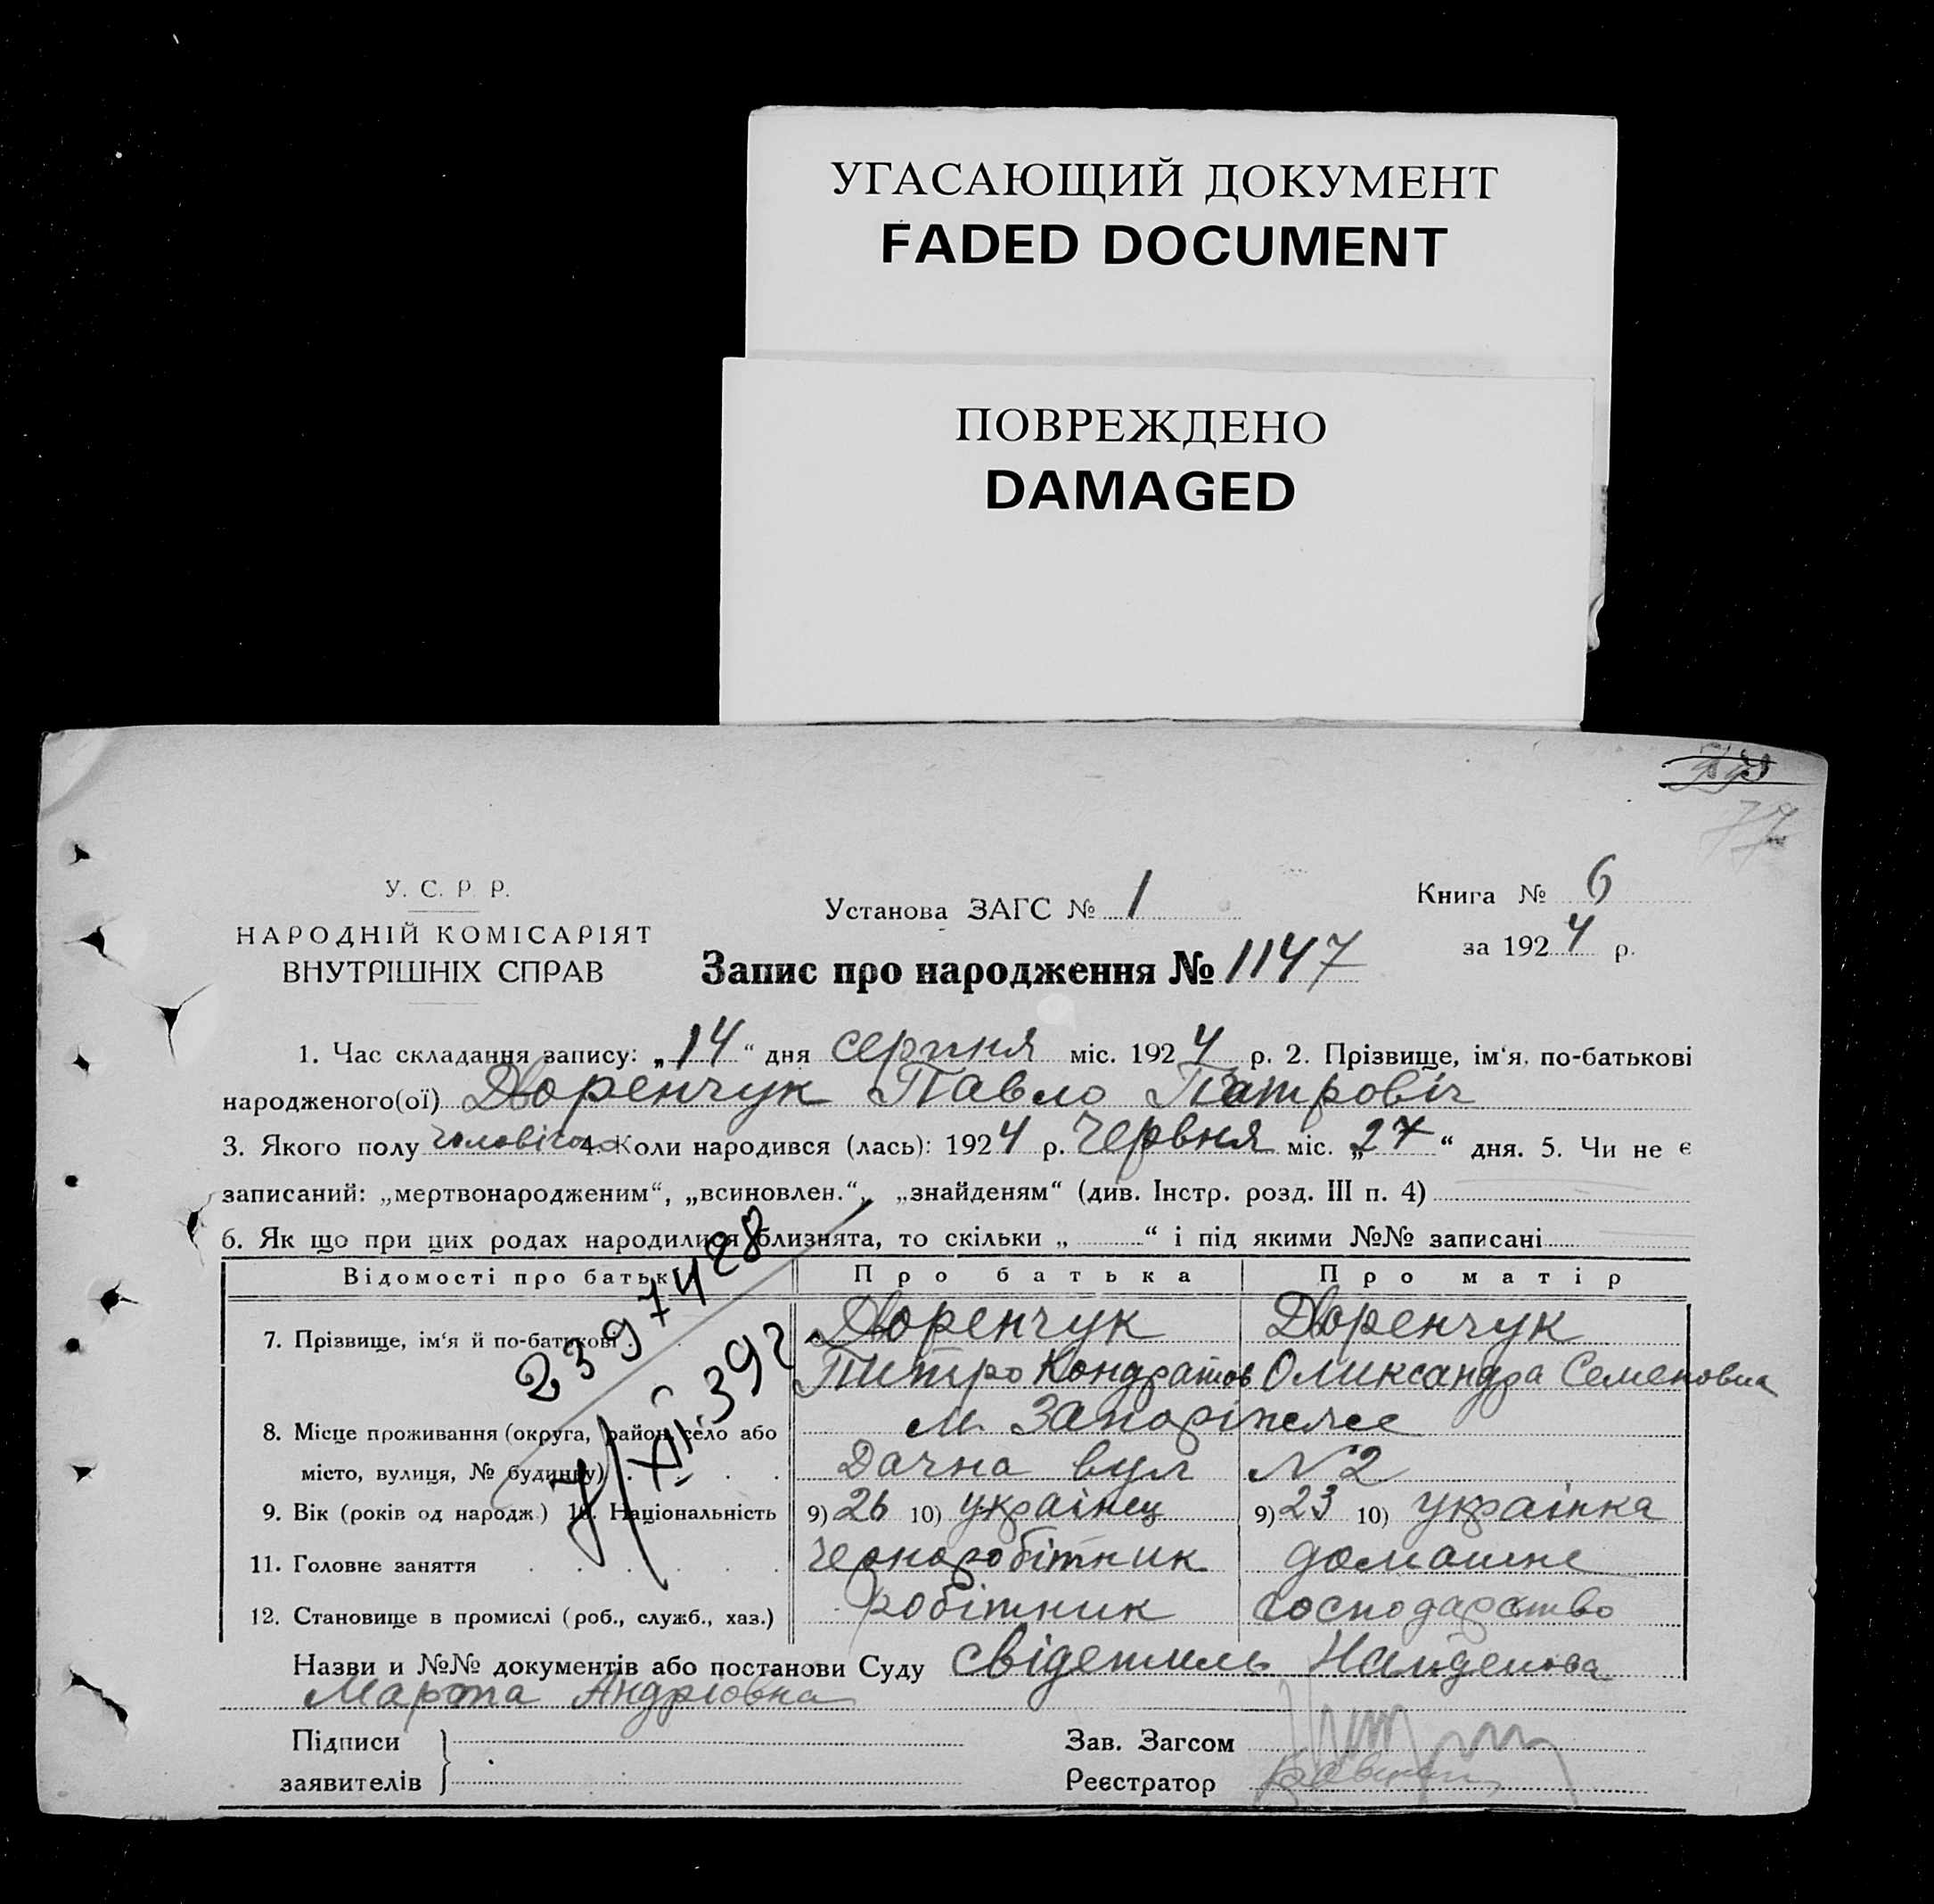 УГАСАЮЩИЙ ДОКУМЕНТ
FADED DOCUMENT
ПОВРЕЖДЕНО
DAMAGED
77
У. С. Р. Р.
НАРОДНІЙ КОМІСАРІЯТ
ВНУТРІШНІХ СПРАВ
Установа ЗАГС № 1
Книга № 6
за 1924 р.
Запис про народження № 1147
1. Час складання запису: „14“ дня серпня міс. 1924 р. 2. Прізвище, ім'я, по-батькові
народженого(ої) Дворенчук Павло Петровіч
3. Якого полу чоловічого 4. Коли народився (лась): 1924 р. Червня міс. „27“ дня. 5. Чи не є
записаний: „мертвонародженим“, „всиновлен.“, „знайденям“ (див. Інстр. розд. III п. 4)
6. Як що при цих родах народилися близнята, то скільки „ “ і під якими №№ записані
Відомості про батьк
Про батька
Про матір
7. Прізвище, ім'я й по-батькові
Дворенчук
Дворенчук
Питро Кондратов
Олександра Семеновна
8. Місце проживання (округа, район, село або
м. Запоріжжє
місто, вулиця, № будинку)
Дачна вул N 2
9. Вік (років од народж.) 10. Національність
9) 26 10) українец
9) 23 10) українка
11. Головне заняття
Черноробітник
домашне
12. Становище в промислі (роб., служб., хаз.)
робітник
господарство
2397428
Назви и №№ документів або постанови Суду свідетиль Найденова
Марта Андріовна
Підписи
заявителів
Зав. Загсом
Реєстратор